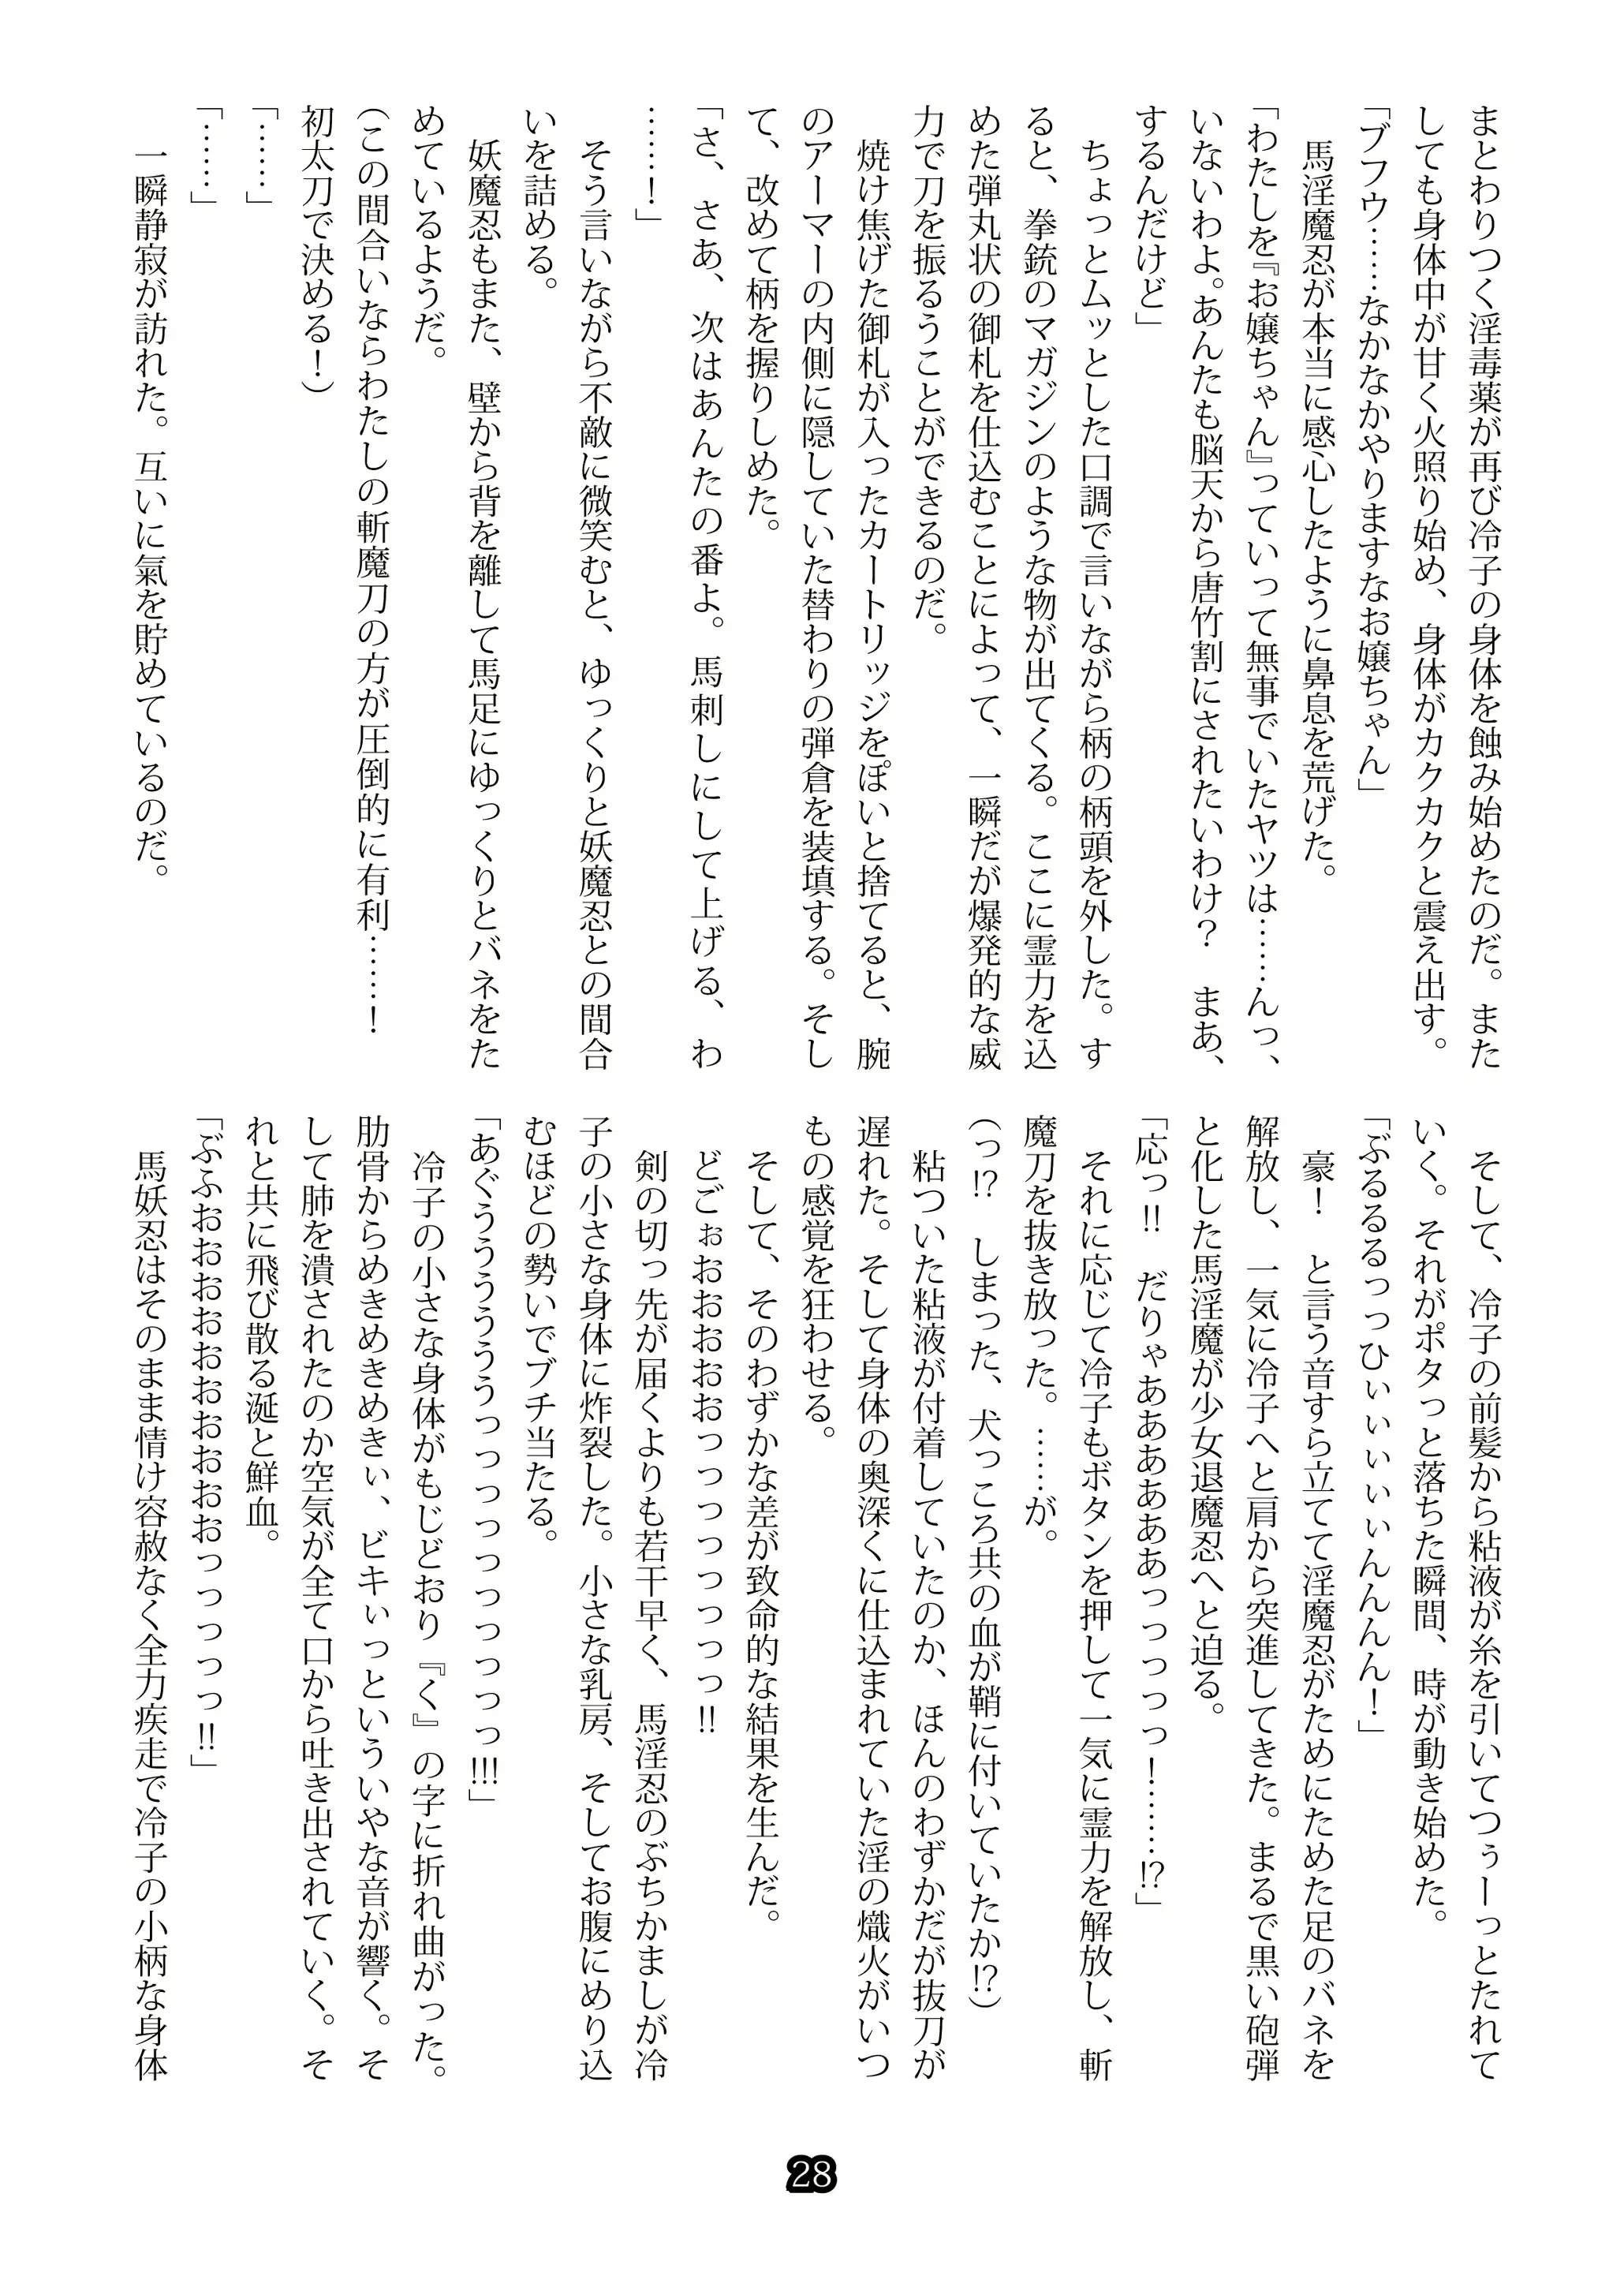 まとわりつく淫毒薬が再び冷子の身体を蝕み始めたのだ。また
しても身体中が甘く火照り始め、身体がカクカクと震え出す。
「ブフウ……なかなかやりますなお嬢ちゃん」
馬淫魔忍が本当に感心したように鼻息を荒げた。
「わたしを『お嬢ちゃん』っていって無事でいたヤツは……んっ、
いないわよ。あんたも脳天から唐竹割にされたいわけ？　まあ、
するんだけど」
ちょっとムッとした口調で言いながら柄の柄頭を外した。す
ると、拳銃のマガジンのような物が出てくる。ここに霊力を込
めた弾丸状の御札を仕込むことによって、一瞬だが爆発的な威
力で刀を振るうことができるのだ。
焼け焦げた御札が入ったカートリッジをぽいと捨てると、腕
のアーマーの内側に隠していた替わりの弾倉を装填する。そし
て、改めて柄を握りしめた。
「さ、さあ、次はあんたの番よ。馬刺しにして上げる、わ
……！」
そう言いながら不敵に微笑むと、ゆっくりと妖魔忍との間合
いを詰める。
妖魔忍もまた、壁から背を離して馬足にゆっくりとバネをた
めているようだ。
（この間合いならわたしの斬魔刀の方が圧倒的に有利……！
初太刀で決める！）
「……」
「……」
一瞬静寂が訪れた。互いに氣を貯めているのだ。
そして、冷子の前髪から粘液が糸を引いてつぅーっとたれて
いく。それがポタっと落ちた瞬間、時が動き始めた。
「ぶるるるっっひぃぃぃぃぃんんんん！」
豪！　と言う音すら立てて淫魔忍がためにためた足のバネを
解放し、一気に冷子へと肩から突進してきた。まるで黒い砲弾
と化した馬淫魔が少女退魔忍へと迫る。
「応っ‼　だりゃああああああああっっっっっ！……⁉」
それに応じて冷子もボタンを押して一気に霊力を解放し、斬
魔刀を抜き放った。……が。
（っ⁉　しまった、犬っころ共の血が鞘に付いていたか⁉）
粘ついた粘液が付着していたのか、ほんのわずかだが抜刀が
遅れた。そして身体の奥深くに仕込まれていた淫の熾火がいつ
もの感覚を狂わせる。
そして、そのわずかな差が致命的な結果を生んだ。
どごぉおおおおおっっっっっっっっ‼
剣の切っ先が届くよりも若干早く、馬淫忍のぶちかましが冷
子の小さな身体に炸裂した。小さな乳房、そしてお腹にめり込
むほどの勢いでブチ当たる。
「あぐぅうううううっっっっっっっっっっ!!!」
冷子の小さな身体がもじどおり『く』の字に折れ曲がった。
肋骨からめきめきめきぃ、ビキぃっといういやな音が響く。そ
して肺を潰されたのか空気が全て口から吐き出されていく。そ
れと共に飛び散る涎と鮮血。
「ぶふおおおおおおおおおおっっっっっ‼」
馬妖忍はそのまま情け容赦なく全力疾走で冷子の小柄な身体
28